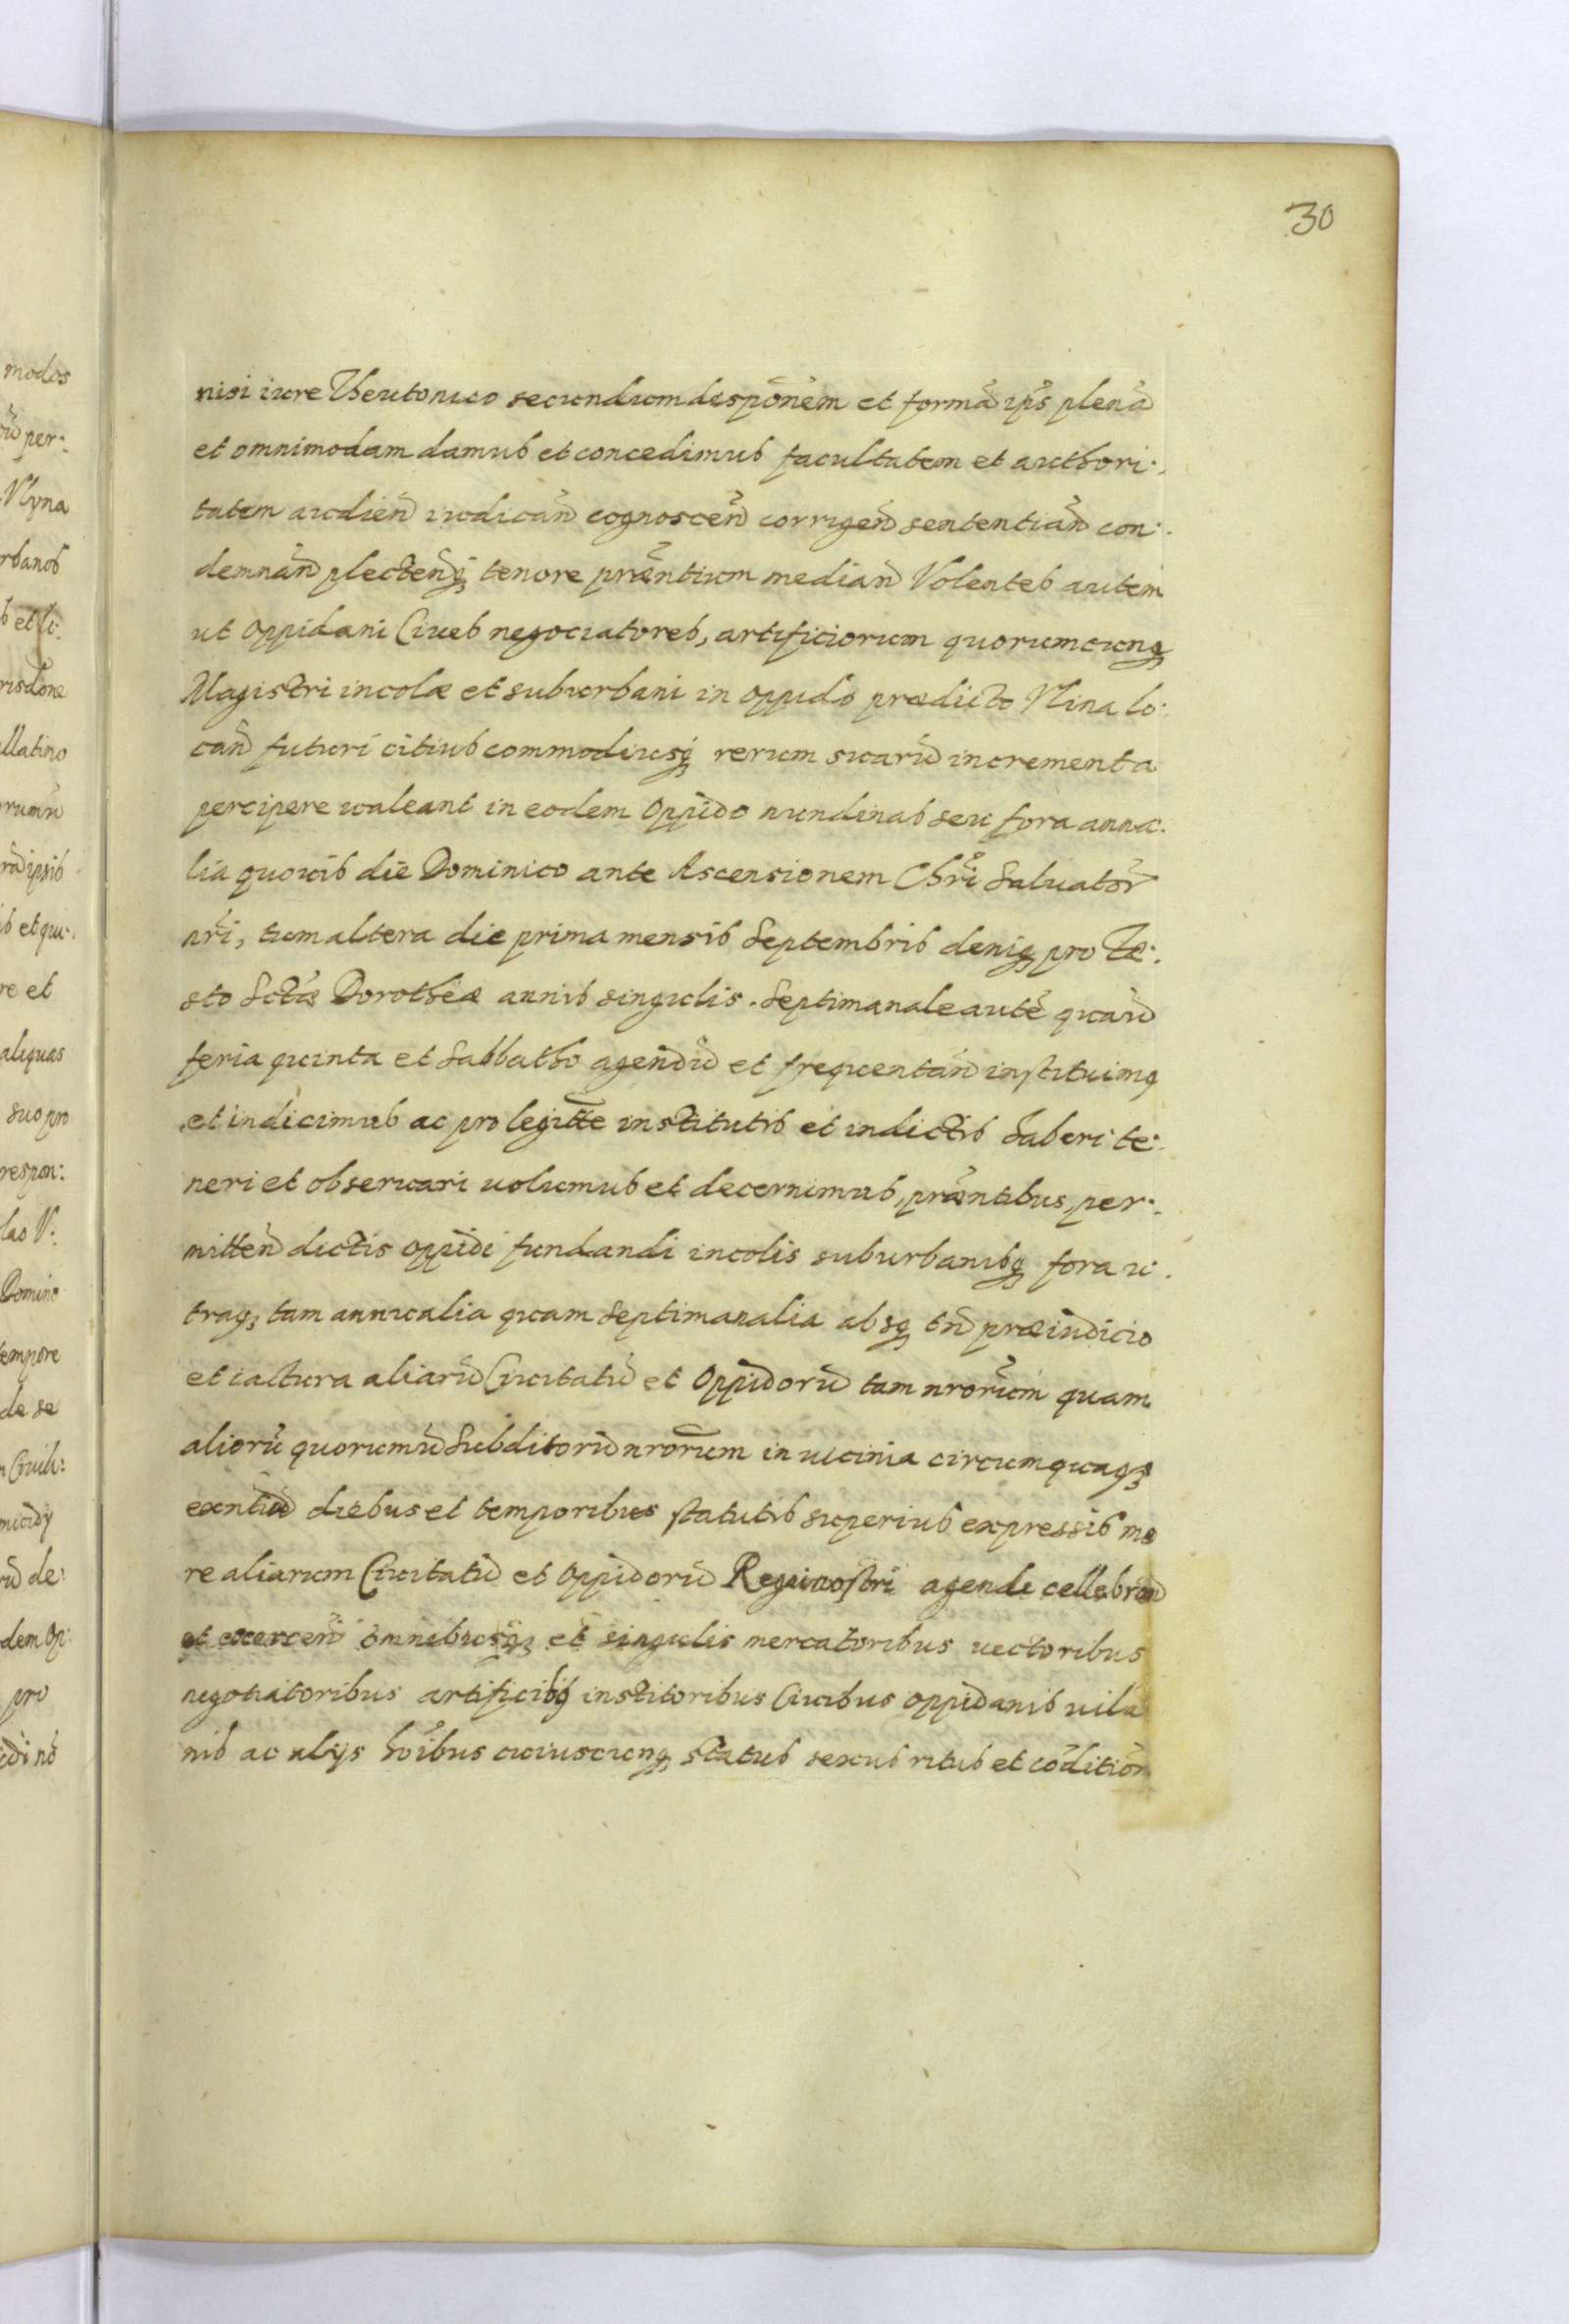 30
nisi iure Theutonico secundum dispōnem et formā ip̄s plenā
et omnimodam damus et concedimus facultatem et authori:
tatem audien̄ iudican̄ cognoscen̄ corrigen̄ sententian̄ con:
demnan̄ plecten̄q; tenore præn̄tium median̄ Volentes autem
ut Oppidani Ciues negociatores, artificiorum quorumcunq;
Magistri incolæ et suburbani in oppido prædicto Nina lo:
can̄ futuri citius commodiusq; rerum suarū incrementa
percipere ualeant in eodem Oppido nundinas seu fora annua:
lia quouis die Dominico ante Ascensionem Chr̄i Saluator̄
nr̄i, tum altera die prima mensis Septembris deniq; pro Fe:
sto Sctæ Dorotheæ annis singulis. Septimanale autē quaū
feria quinta et Sabbatho agendū et frequentan̄ instituimq
et indicimus ac pro legitt̄e institutis et indictis haberi te:
neri et obseruari uolumus et decernimus, præn̄tibus, per:
mitten̄ dictis oppidi fundandi incolis suburbanisq; fora u:
traq; tam annualia quam septimanalia absq; tn̄ præiudicio
et iactura aliarū Ciuitatū et Oppidorū tam nrōrum quam
aliorū quorumū Subditorū nrōrum in uicinia circumquaq;
exn̄tiū diebus et temporibus statutis superius expressis mo
re aliarum Ciuitatū et Oppidorū Regni nostri agendi cellebran̄
et exercen̄ omnibusq; et singulis mercatoribus uectoribus
negotiatoribus artificibq; institoribus Ciuibus oppidanis uilla
nis ac alijs hōibus cuiuscunq; status sexus ritus et cōdition̄
modos
per:
Nyna
rbanos
s et li:
risdōne
llatino
rumū
rā ipsis
is et qui:
re et
aliquas
suo pro
respon:
las V:
Domino
tempore
de se
Ciuili:
micidÿ
rū de:
dem Op:
pro
idi nō